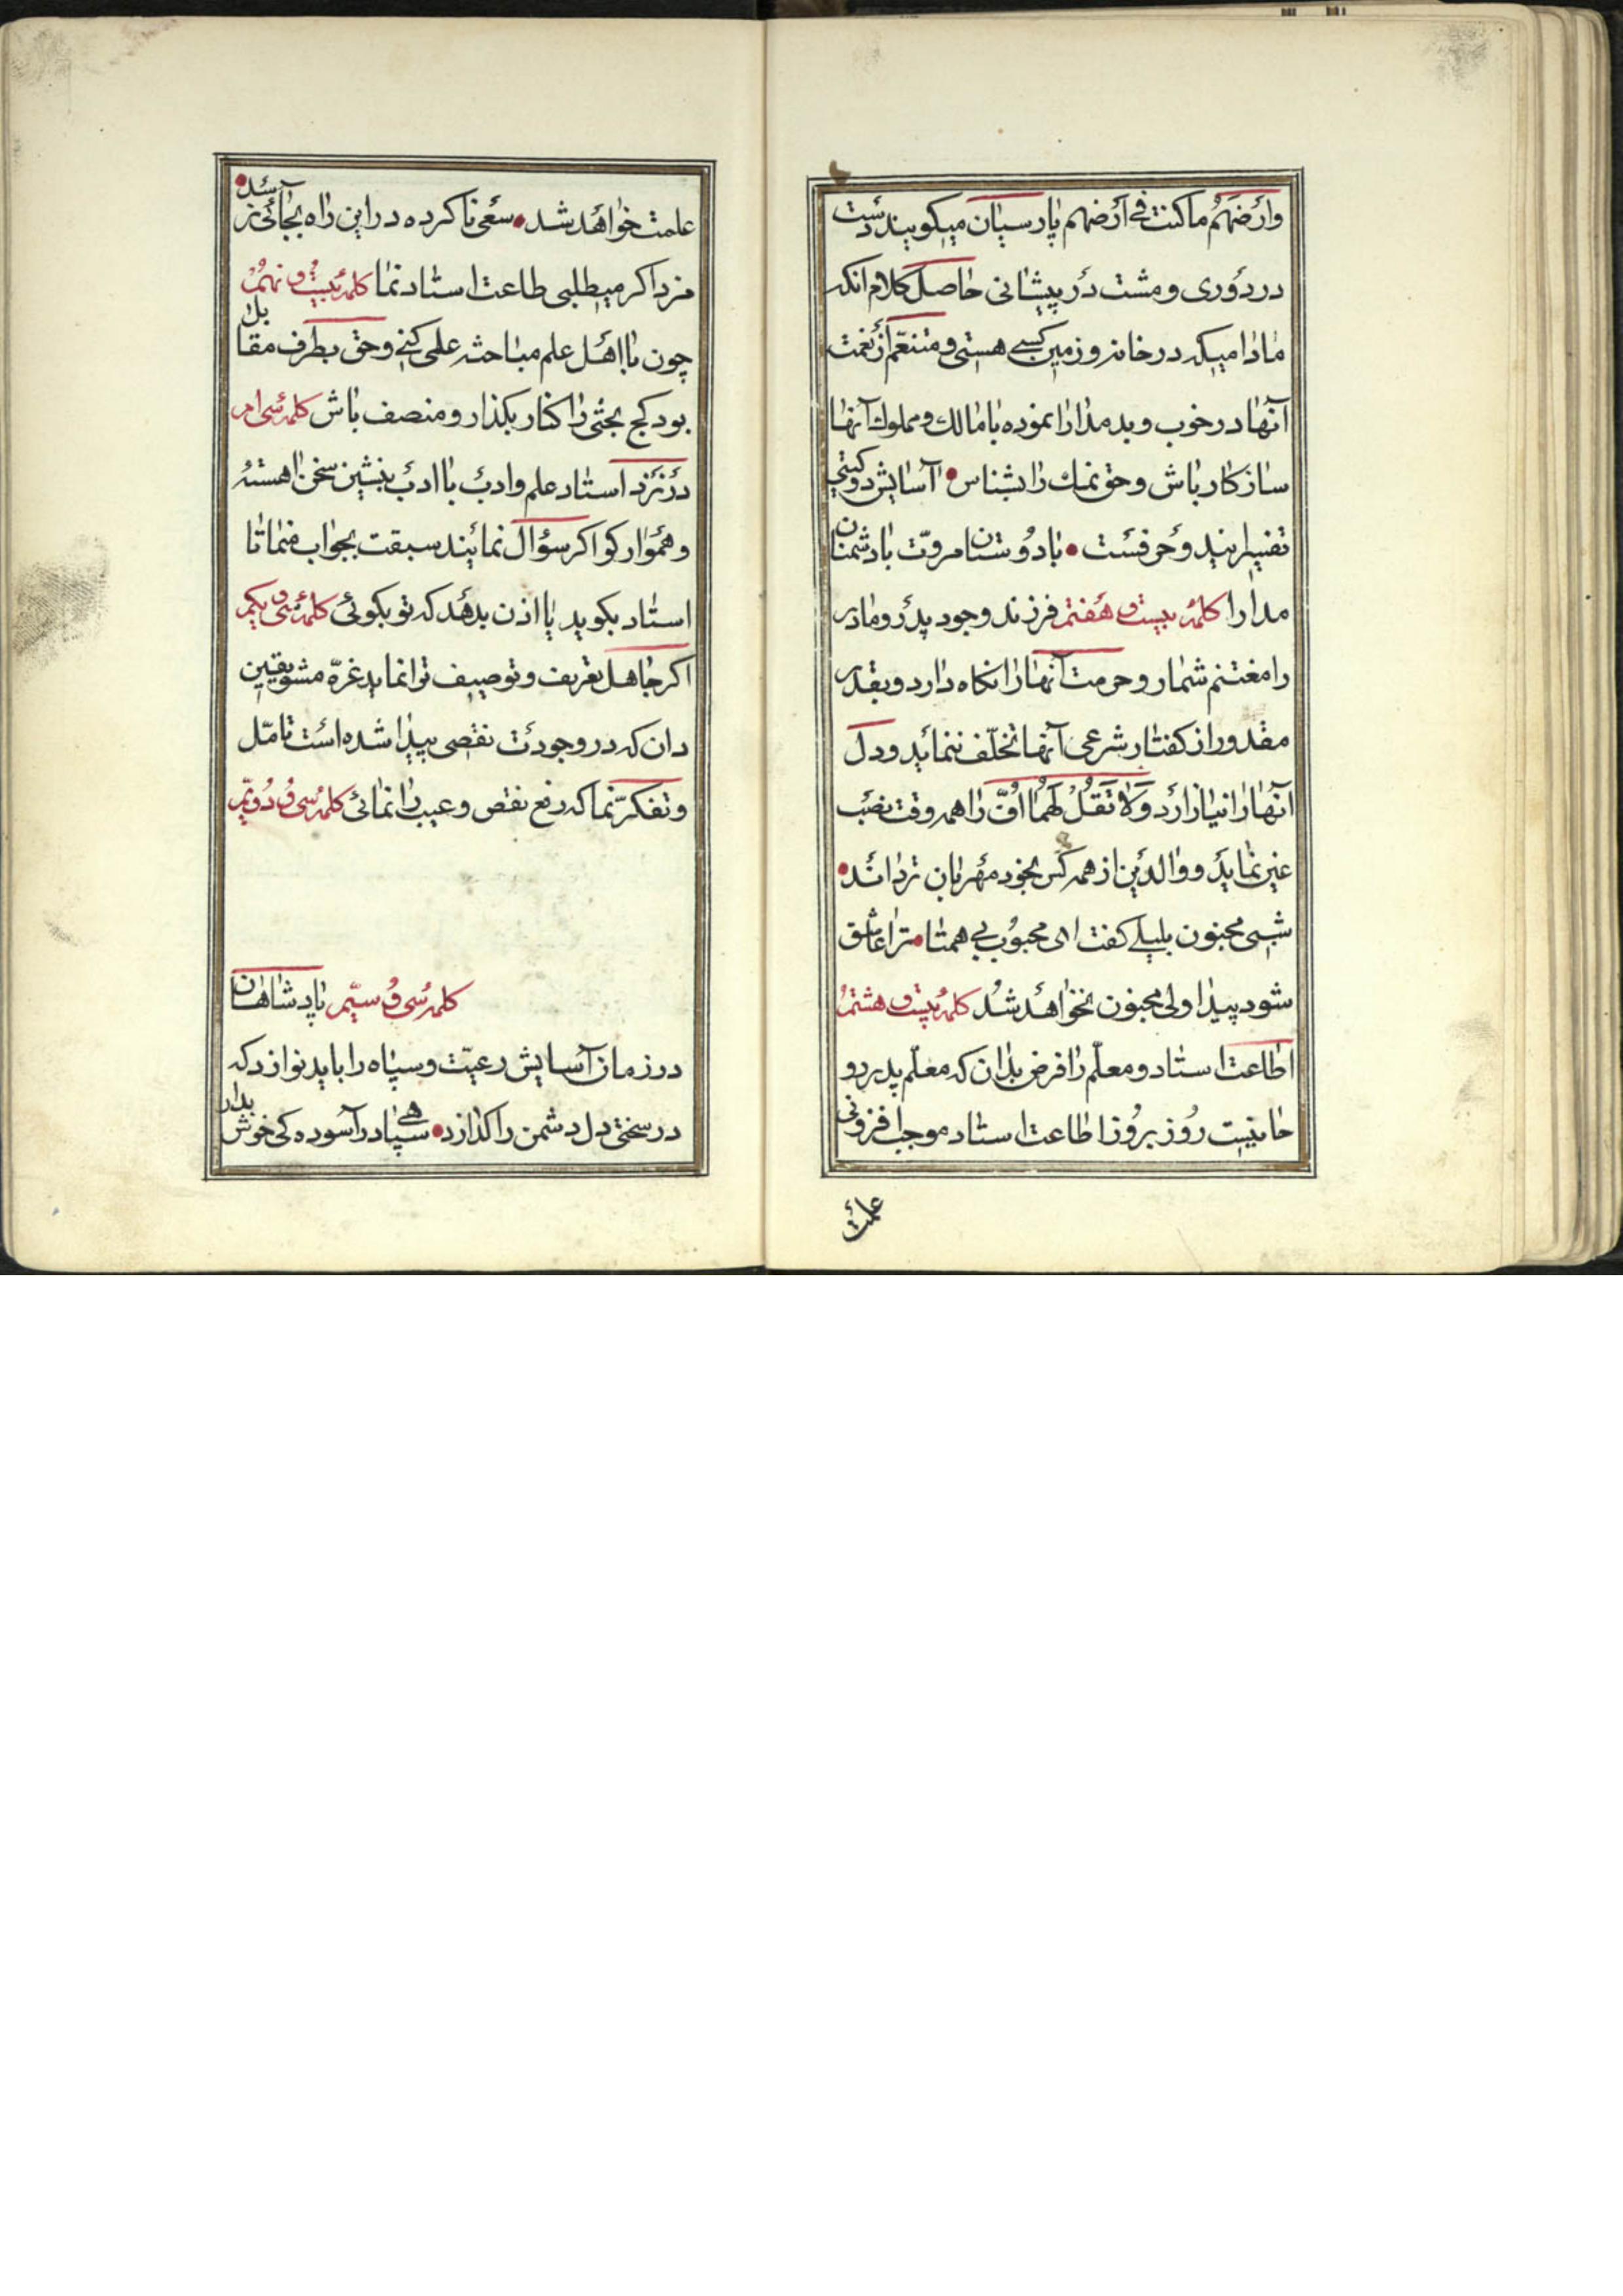 وارضهم ما كنت في أرضهم پارسیان میکویند دست
در دوری و مشت در پیشانی حاصل کلام انکه
مادامیکه در خانه و زمین کسی هستی و متنعم از نعمت
آنها در خوب و بد مدارا نموده با مالك و مملوك آنها
ساز کار باش و حق نمك را بشناس • آسایش دو کیتی
تفسیر این دو حرفست • با دوستان مروت با دشمنان
مدارا کلمه بیست و هفتم فرزند وجود پدر و مادر
را مغتنم شمارد و حرمت آنها را نکاه دارد و بقدر
مقدور از کفتار شرعی آنها تخلف ننماید و دل
آنها را نیازارد وَلَا تَقُلْ لَهُمَا أُفّ را همه وقت نصب
عین نماید و والدین از همه کس بخود مهربان تر دانند •
شبی مجنون بلیلی کفت ای محبوب بی همتا • ترا عاشق
شود پیدا ولی مجنون نخواهد شد کلمه بیست و هشتم
اطاعت استاد و معلم را فرض بدان که معلم پدر رو
حانیست روز بروز اطاعت استاد موجب افزونی
علمت
علمت خواهد شد • سعی نا کرده در این راه بجائی نرسد •
مزد اکر میطلبی طاعت استاد نما کلمه بیست و نهم
چون با اهل علم مباحثه علمی کنی و حق بطرف مقابل
بود کج بحثی را کنار بکذار و منصف باش کلمه سی ام
در نزد استاد علم و ادب با ادب بنشین سخن اهسته
و هموار کو اکر سؤال نمایند سبقت بجواب منما تا
استاد بکوید یا اذن بدهد که تو بکوئی کلمه سی و یکم
اکر جاهل تعریف و توصیف ترا نماید غره مشو یقین
دان که در وجودت نقصی پیدا شده است تامّل
و تفکر نما که رفع نقص و عیب را نمائی کلمه سی و دویم
کلمه سی و سیم پادشاهان
در زمان آسایش رعیت و سپاه را باید نوازد که
در سختی دل دشمن را کدازد • سپاهی در آسوده کی خوش بدار